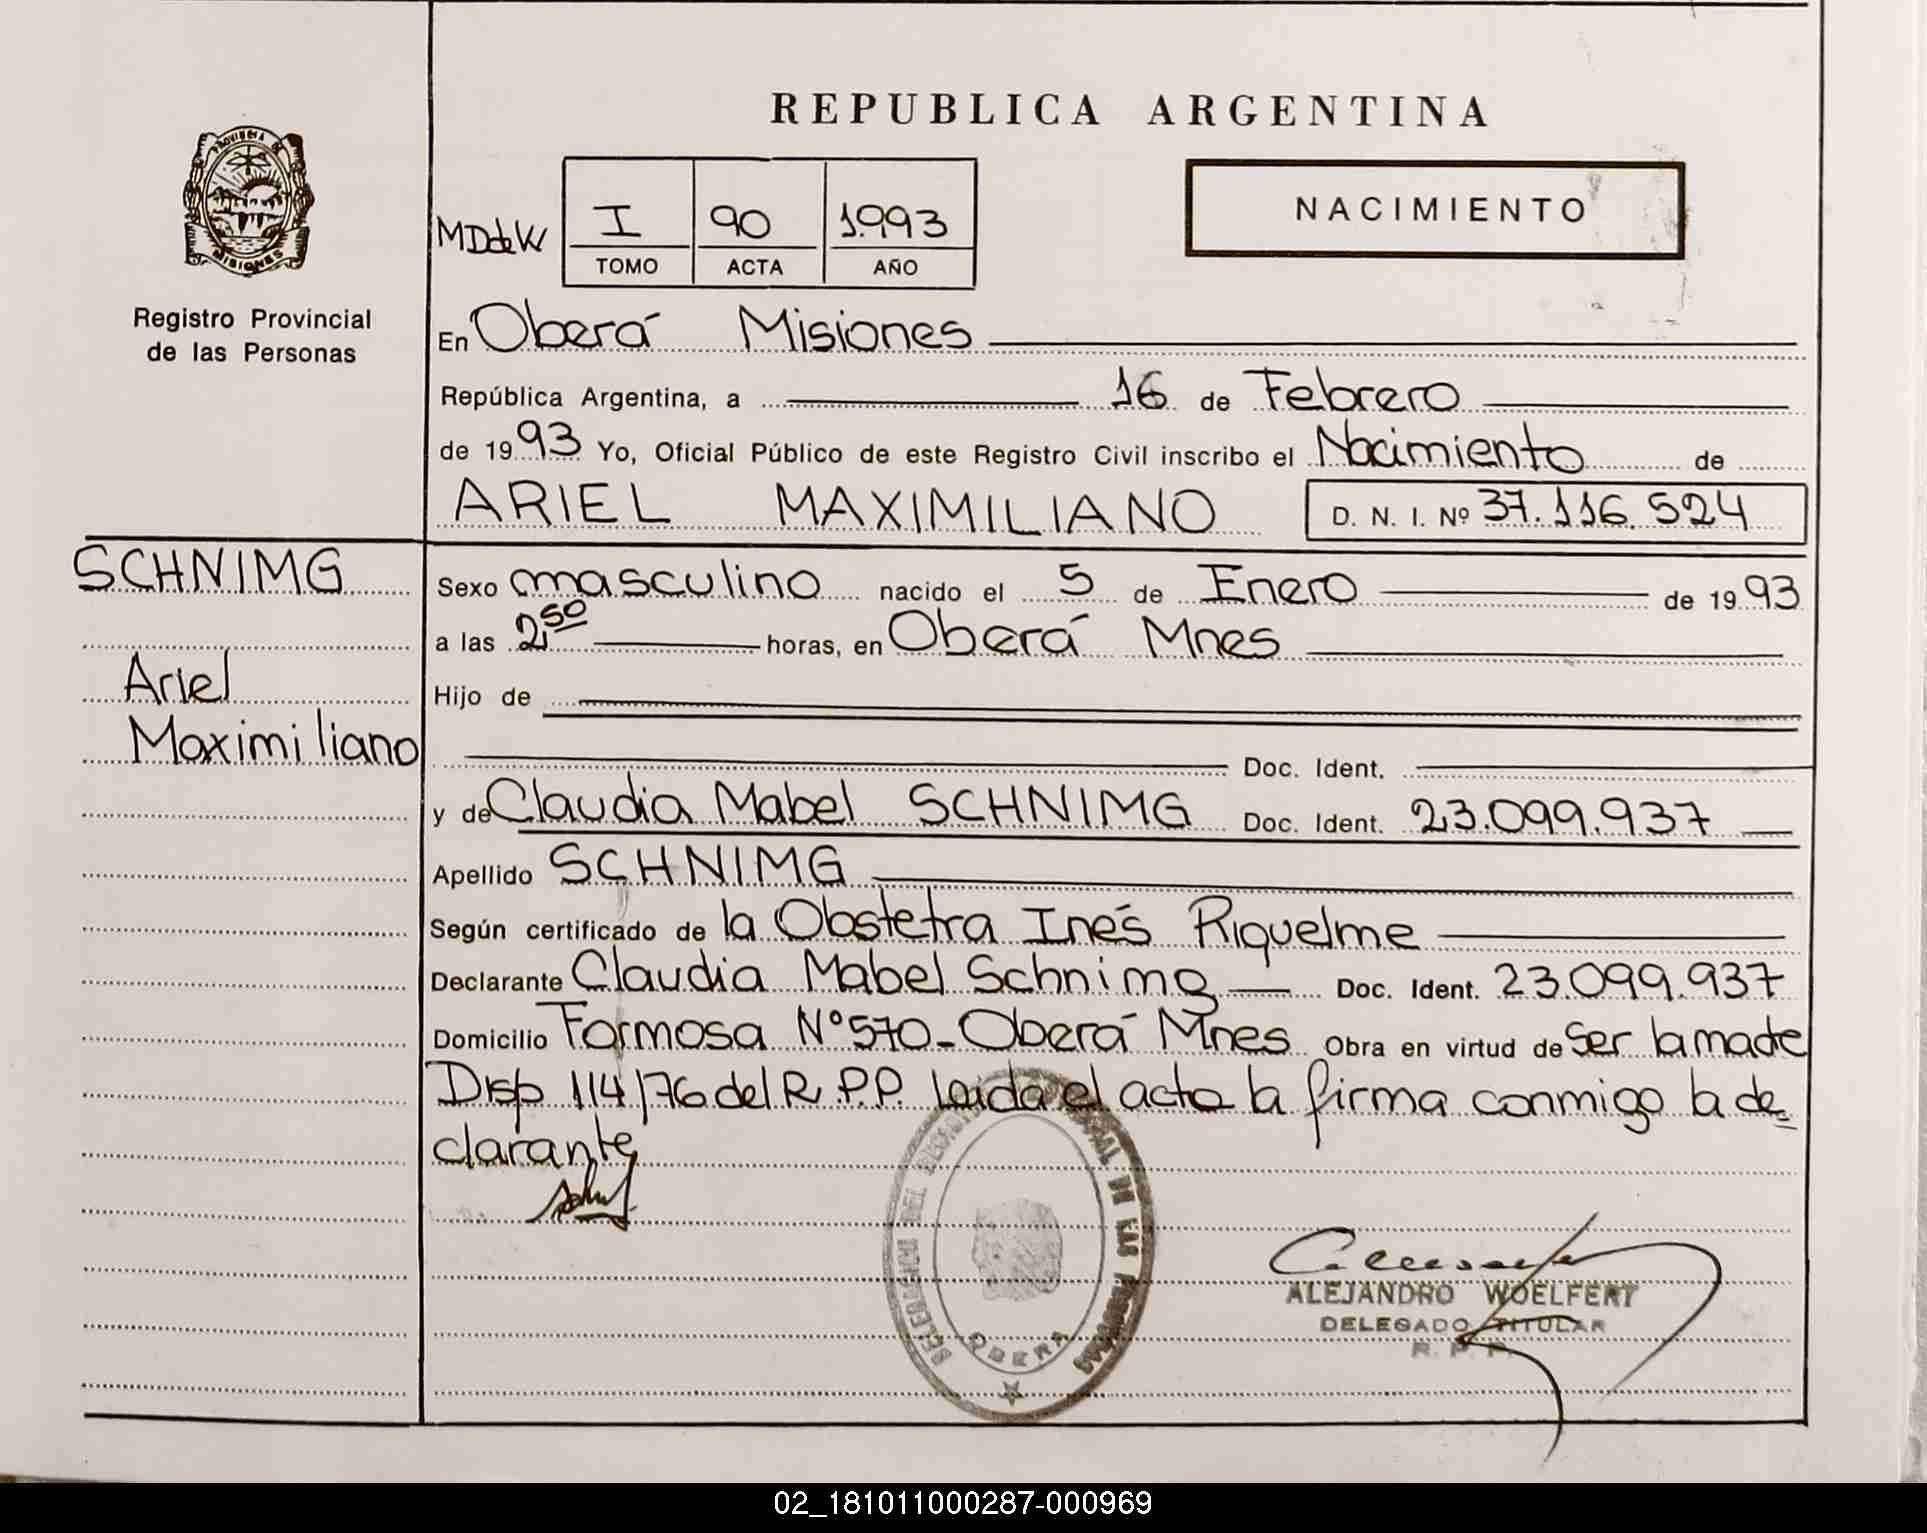 REPUBLICA ARGENTINA
PROVINCIA DE
MISIONES
Registro Provincial
de las Personas
MDdeW
I 90 1.993
TOMO ACTA AÑO
NACIMIENTO
En Oberá Misiones
República Argentina, a 16 de Febrero
de 1993 Yo, Oficial Público de este Registro Civil inscribo el Nacimiento de
ARIEL MAXIMILIANO D. N. I. Nº 37.116.524
SCHNIMG
Ariel
Maximiliano
Sexo masculino nacido el 5 de Enero de 1993
a las 2,50 horas, en Oberá Mnes
Hijo de
Doc. Ident.
y de Claudia Mabel SCHNIMG Doc. Ident. 23.099.937
Apellido SCHNIMG
Según certificado de la Obstetra Inés Riquelme
Declarante Claudia Mabel Schnimg Doc. Ident. 23.099.937
Domicilio Formosa Nº 570-Oberá Mnes Obra en virtud de ser la madre
Disp 114/76 del R.P.P. Leida el acta la firma conmigo la de=
clarante
DE LAS PERSONAS
OBERA
ALEJANDRO WOELFERT
DELEGADO TITULAR
R. P. P.
02_181011000287-000969